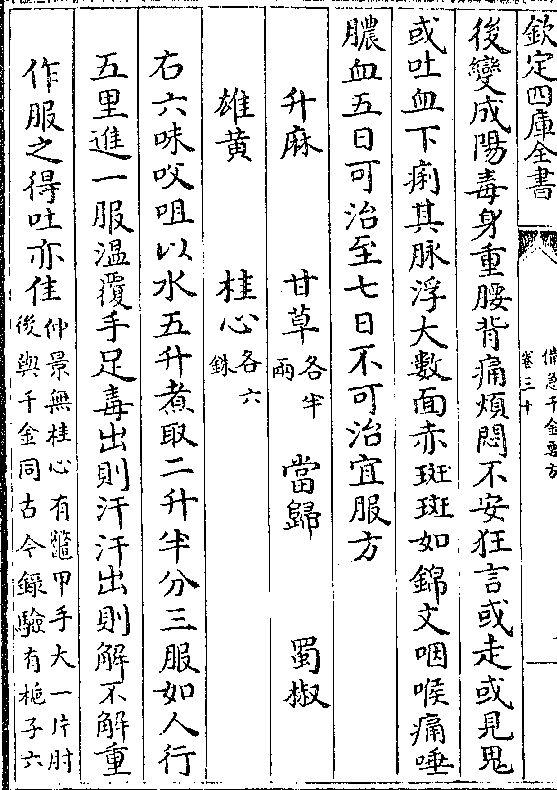 欽定四庫全書
備急千金要方
卷三十
後變成陽毒身重腰背痛煩悶不安狂言或走或見鬼
或吐血下痢其脉浮大數面赤斑斑如錦文咽喉痛唾
膿血五日可治至七日不可治宜服方
升麻　甘草各半兩　當歸　蜀椒
雄黄　桂心各六銖
右六味㕮咀以水五升煮取二升半分三服如人行
五里進一服温覆手足毒出則汗汗出則解不解重
作服之得吐亦佳仲景無桂心有鼈甲手大一片肘
後與千金同古今録驗有梔子六